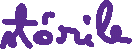 stórile